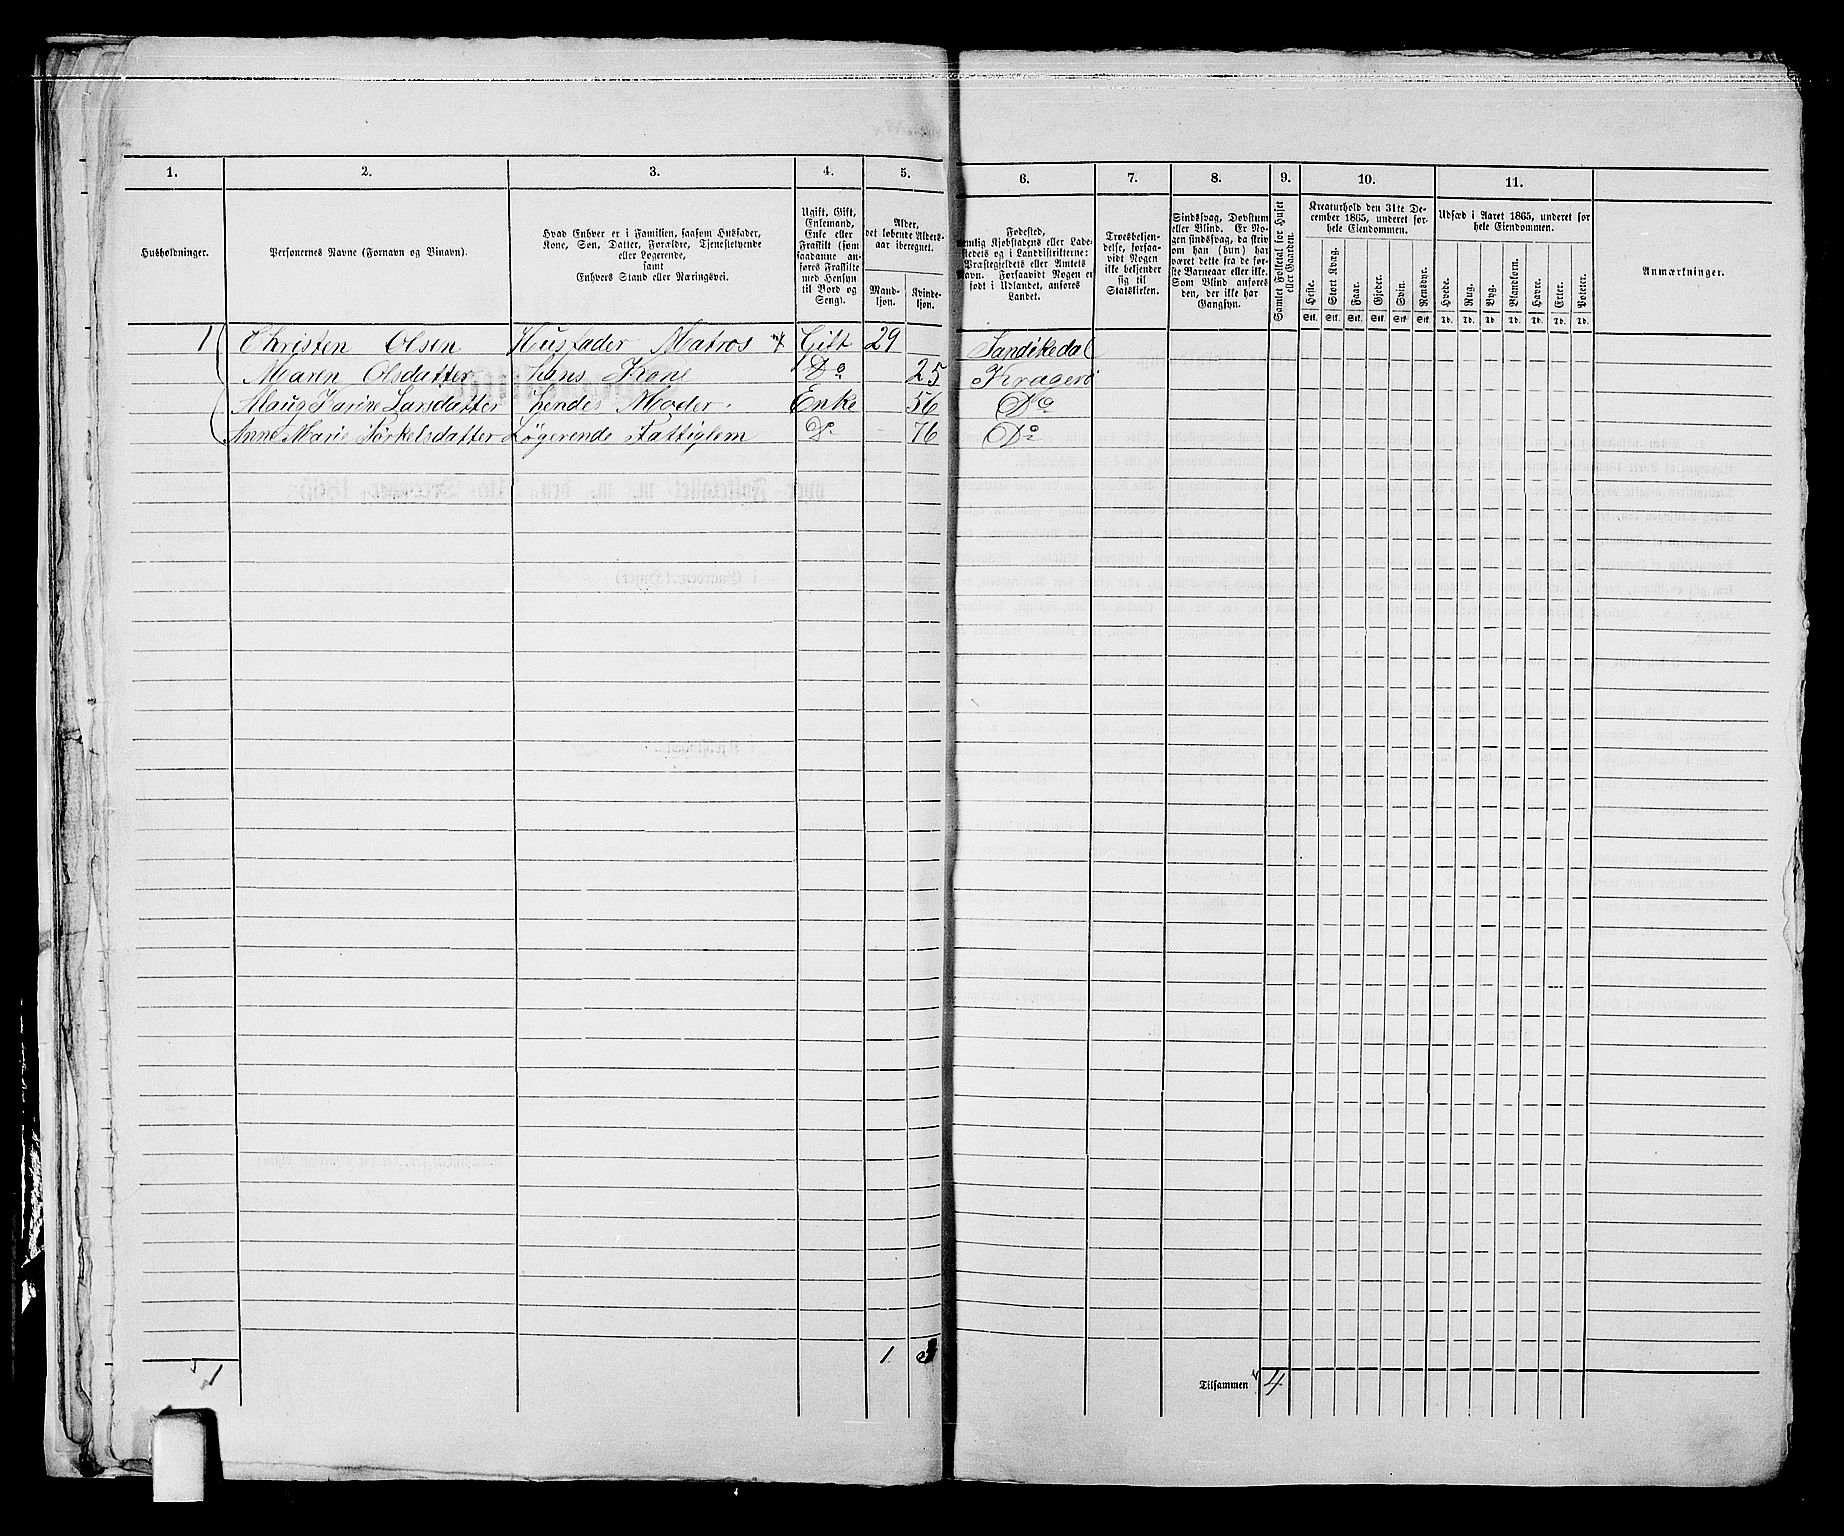 1. 2. 3. 4. 5. 6. 7. 8. 9. 10. 11.
Husholdninger.
Personernes Navne (Fornavn og Binavn).
Hvad Enhver er i Familien, saasom Husfader,
Kone, Søn, Datter, Forældre, Tjenestetyende
eller Logerende,
samt
Enhvers Stand eller Næringsvei.
Ugift, Gift,
Enkemand,
Enke eller
Fraskilt (som
saadanne an-
føres Fraskilte
med Hensyn
til Bord og
Seng).
Alder,
det løbende Alders-
aar iberegnet.
Mand-
kjøn.
Kvinde-
kjøn.
Fødested,
nemlig Kjøbstadens eller Lade-
stedets og i Landdistrikterne:
Præstegjeldets eller Amtets
Navn. Forsaavidt Nogen er
født i Udlandet, anføres
Landet.
Troesbekjen-
delse, forsaa-
vidt Nogen
ikke bekjender
sig til
Statskirken.
Sindssvag, Døvstum
eller Blind. Er No-
gen sindssvag, da skriv
om han (hun) har
været dette fra de før-
ste Barneaar eller ikke.
Som Blind anføres
den, der ikke har
Gangsyn.
Samlet Folketal for Huset
eller Gaarden.
Kreaturhold den 31te De-
cember 1865, underet for
hele Eiendommen.
Heste. Stort Kvæg. Faar. Gjeder. Svin. Rensdyr.
Stk. Stk. Stk. Stk. Stk. Stk.
Udsæd i Aaret 1865, underet for
hele Eiendommen.
Hvede. Rug. Byg. Blandkorn. Havre. Erter. Poteter.
Td. Td. Td. Td. Td. Td. Td.
Anmærkninger.
1 Christen Olsen Husfader Matros Gift 29 Sandikedal
Maren Olsdatter hans Kone Do 25 Kragerø
Karine Larsdatter hendes Moder. Enke 56 Do
Anne Marie Tørkelsdatter Løgerende Fattiglem D 76 Do
1 1
Tilsammen 4